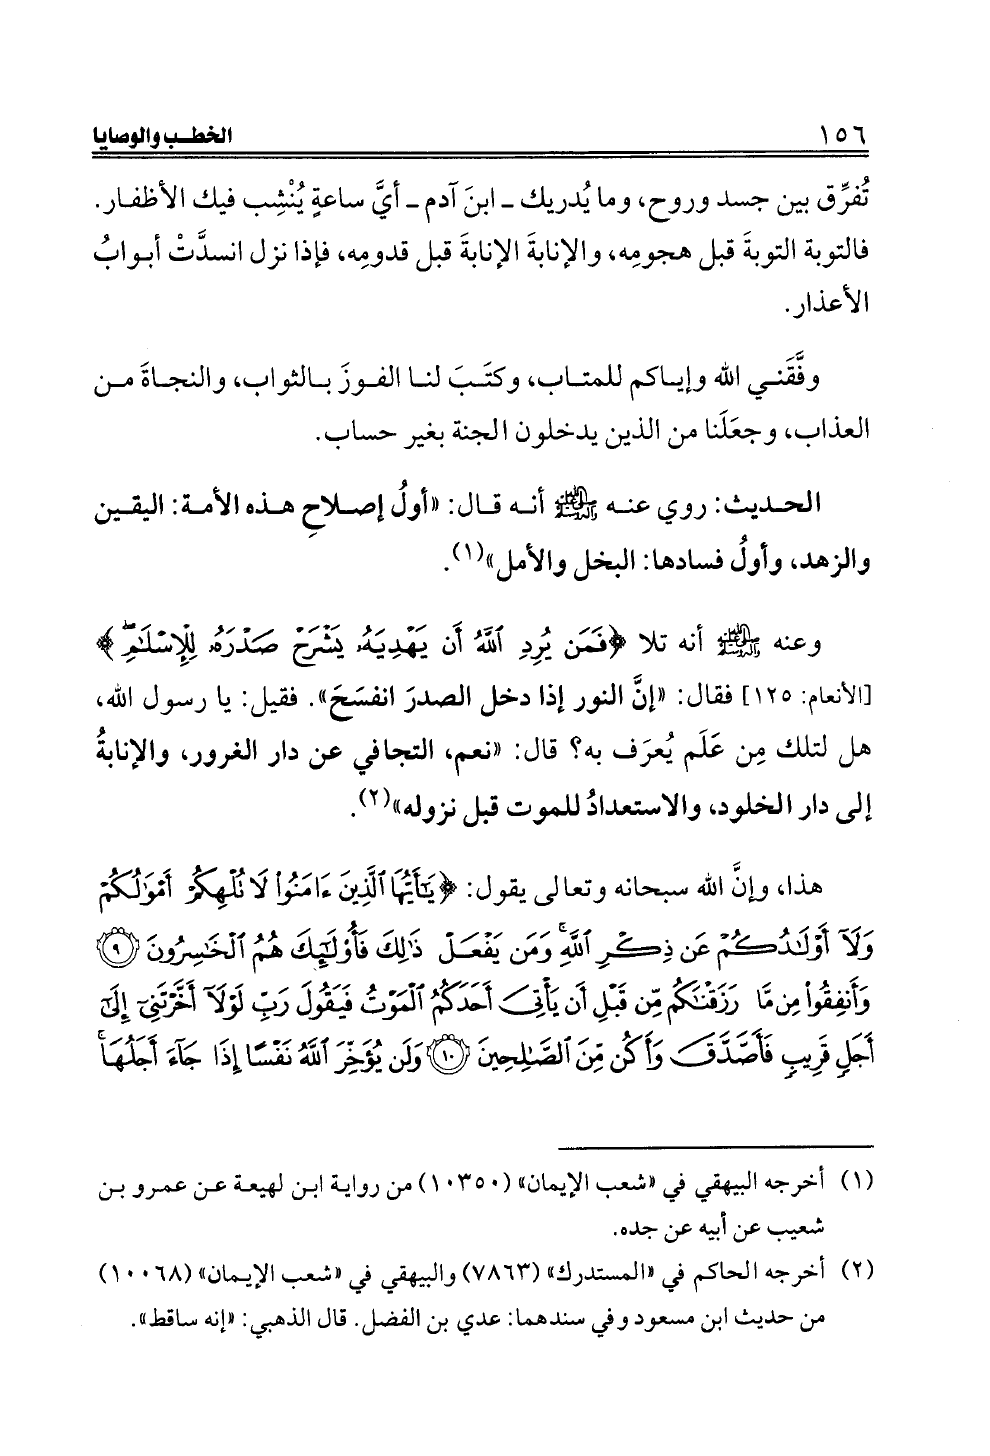 ١٥٦ الخطب والوصايا
تُفرِّق بين جسد وروح، وما يُدريك ـ ابنَ آدم ـ أيَّ ساعةٍ يُنْشِب فيك الأظفار.
فالتوبة التوبةَ قبل هجومِه، والإنابةَ الإنابةَ قبل قدومِه، فإذا نزل انسدَّتْ أبوابُ
الأعذار.
وفَّقَني الله وإياكم للمتاب، وكتَبَ لنا الفوزَ بالثواب، والنجاةَ من
العذاب، وجعَلَنا من الذين يدخلون الجنة بغير حساب.
الحديث: روي عنه ﷺ أنه قال: «أولُ إصلاحِ هذه الأمة: اليقين
والزهد، وأولُ فسادها: البخل والأمل»(١).
وعنه ﷺ أنه تلا ﴿فَمَن يُرِدِ ٱللَّهُ أَن يَهْدِيَهُۥ يَشْرَحْ صَدْرَهُۥ لِلْإِسْلَٰمِ ۖ﴾
[الأنعام: ١٢٥] فقال: «إنَّ النور إذا دخل الصدرَ انفسَحَ». فقيل: يا رسول الله،
هل لتلك مِن عَلَم يُعرَف به؟ قال: «نعم، التجافي عن دار الغرور، والإنابةُ
إلى دار الخلود، والاستعدادُ للموت قبل نزوله»(٢).
هذا، وإنَّ الله سبحانه وتعالى يقول: ﴿يَٰٓأَيُّهَا ٱلَّذِينَ ءَامَنُوا۟ لَا تُلْهِكُمْ أَمْوَٰلُكُمْ
وَلَآ أَوْلَٰدُكُمْ عَن ذِكْرِ ٱللَّهِ ۚ وَمَن يَفْعَلْ ذَٰلِكَ فَأُو۟لَٰٓئِكَ هُمُ ٱلْخَٰسِرُونَ ٩
وَأَنفِقُوا۟ مِن مَّا رَزَقْنَٰكُم مِّن قَبْلِ أَن يَأْتِىَ أَحَدَكُمُ ٱلْمَوْتُ فَيَقُولَ رَبِّ لَوْلَآ أَخَّرْتَنِىٓ إِلَىٰٓ
أَجَلٍ قَرِيبٍ فَأَصَّدَّقَ وَأَكُن مِّنَ ٱلصَّٰلِحِينَ ١٠ وَلَن يُؤَخِّرَ ٱللَّهُ نَفْسًا إِذَا جَآءَ أَجَلُهَا ۚ
(١) أخرجه البيهقي في «شعب الإيمان» (١٠٣٥٠) من رواية ابن لهيعة عن عمرو بن
شعيب عن أبيه عن جده.
(٢) أخرجه الحاكم في «المستدرك» (٧٨٦٣) والبيهقي في «شعب الإيمان» (١٠٠٦٨)
من حديث ابن مسعود وفي سندهما: عدي بن الفضل. قال الذهبي: «إنه ساقط».